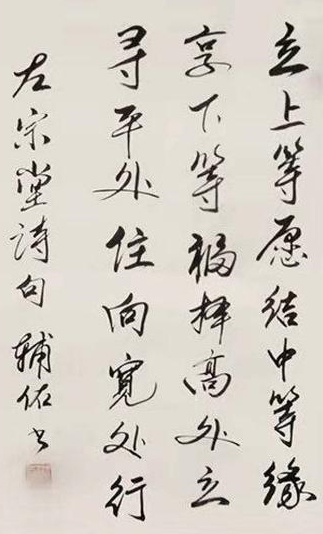 立上等愿结中等缘
享下等福择高处立
寻平处住向宽处行
左宗堂诗句 辅佑书